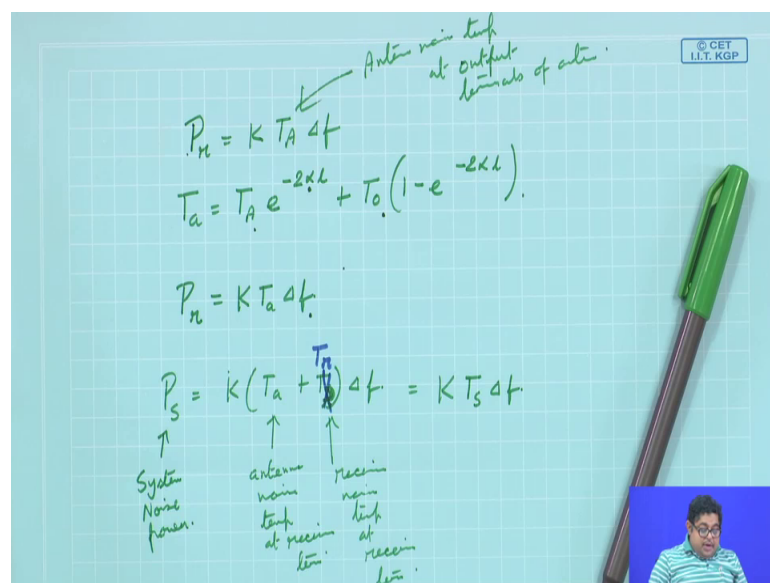 © CET
I.I.T. KGP
Anten noin temp
at output
terminals of anten.
P_r = K T_A Δf
T_a = T_A e^{-2αl} + T_0 (1 - e^{-2αl}).
P_r = K T_a Δf.
T_r
P_s = K (T_a + ) Δf. = K T_s Δf.
System
Noise
power.
antenna
noin
temp
at recein
ter.
receiver
noin
temp
at
receiver
ter.